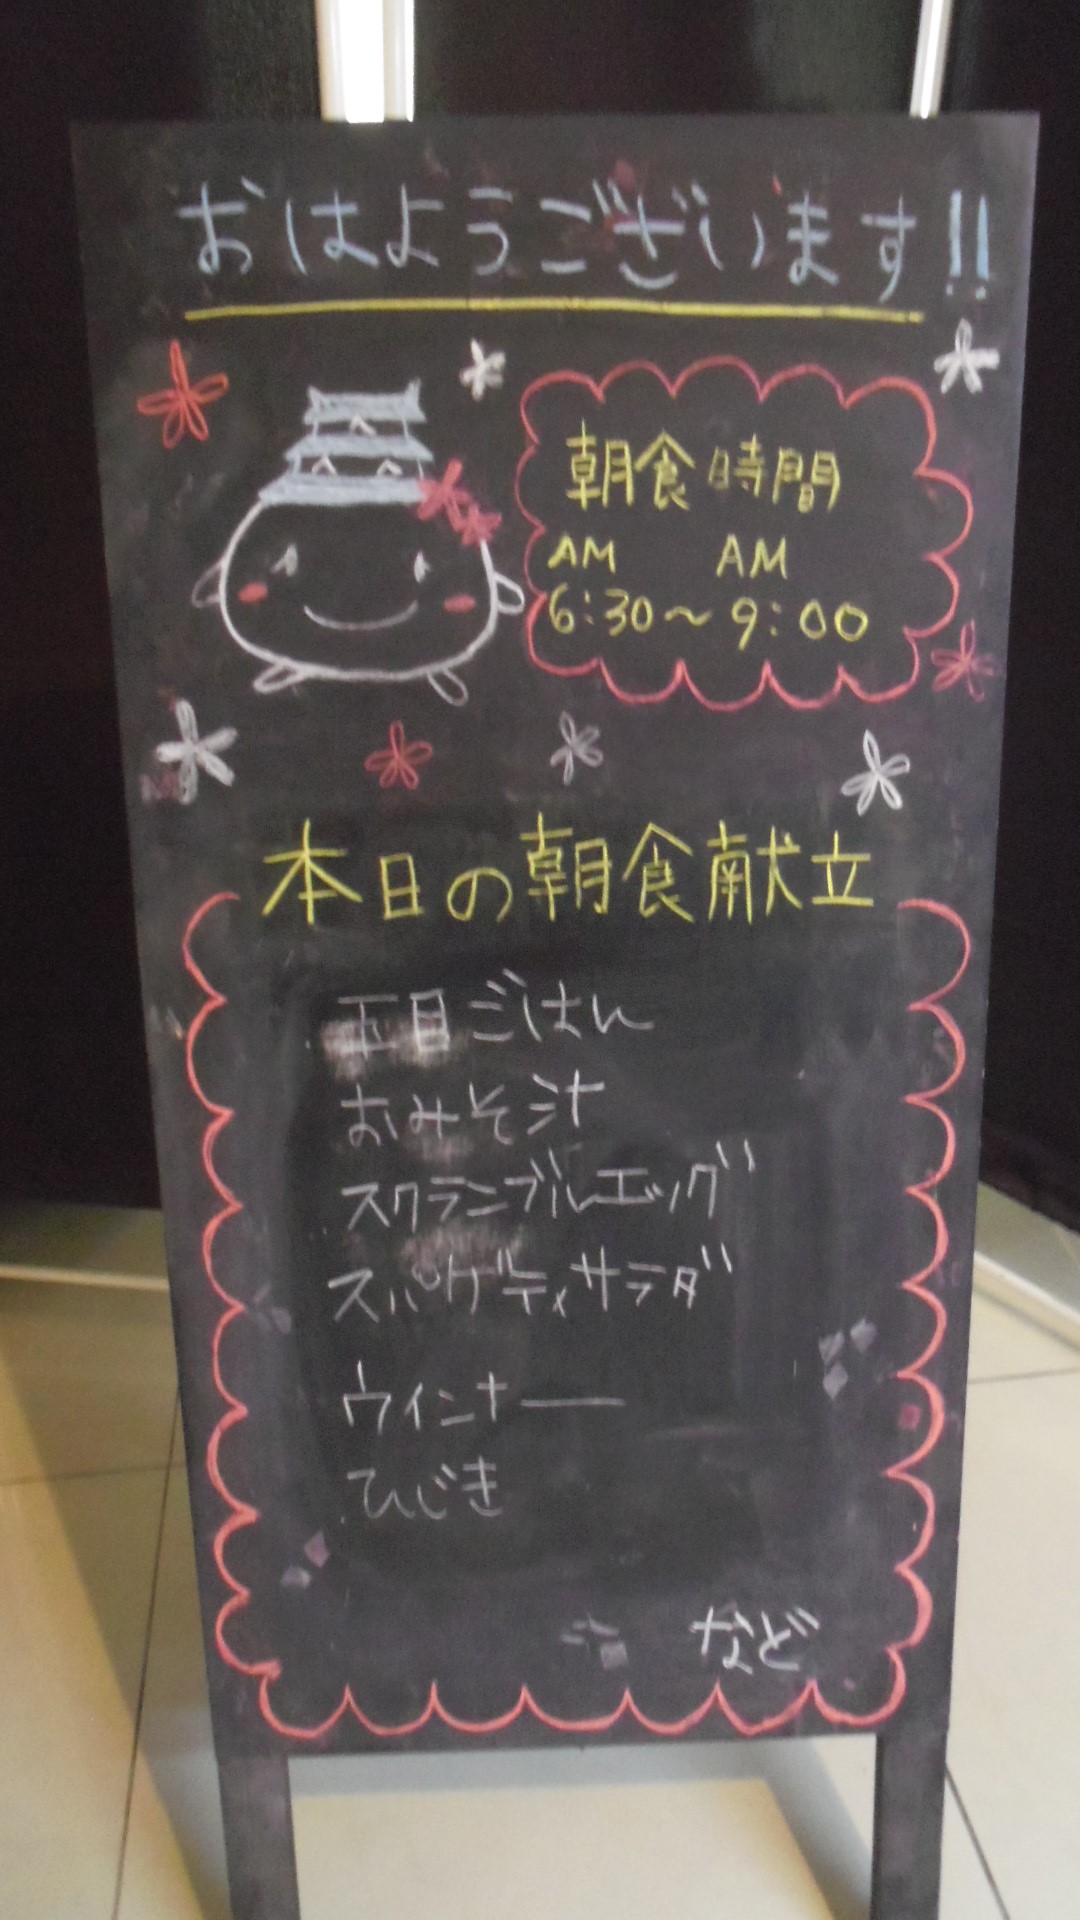 おはようございます!!
朝食時間
AM AM
6:30～9:00
本日の朝食献立
五目ごはん
おみそ汁
スクランブルエッグ
スパゲティサラダ
ウインナー
ひじき
など